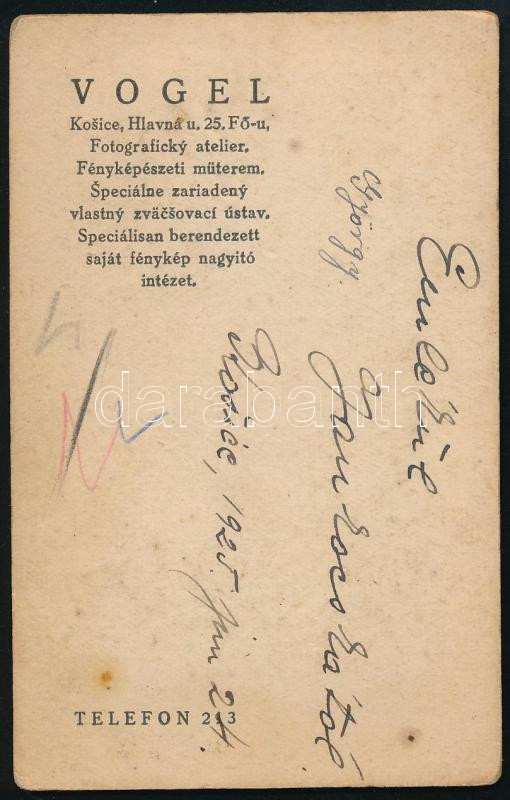 VOGEL
Košice, Hlavná u. 25. Fő-u,
Fotografický atelier.
Fényképészeti műterem.
Špeciálne zariadený
vlastný zväčšovací ústav.
Speciálisan berendezett
saját fénykép nagyitó
intézet.
Emlékül
György.
Jankocskától
Košice, 1925. jún 24.
TELEFON 213
darabanth